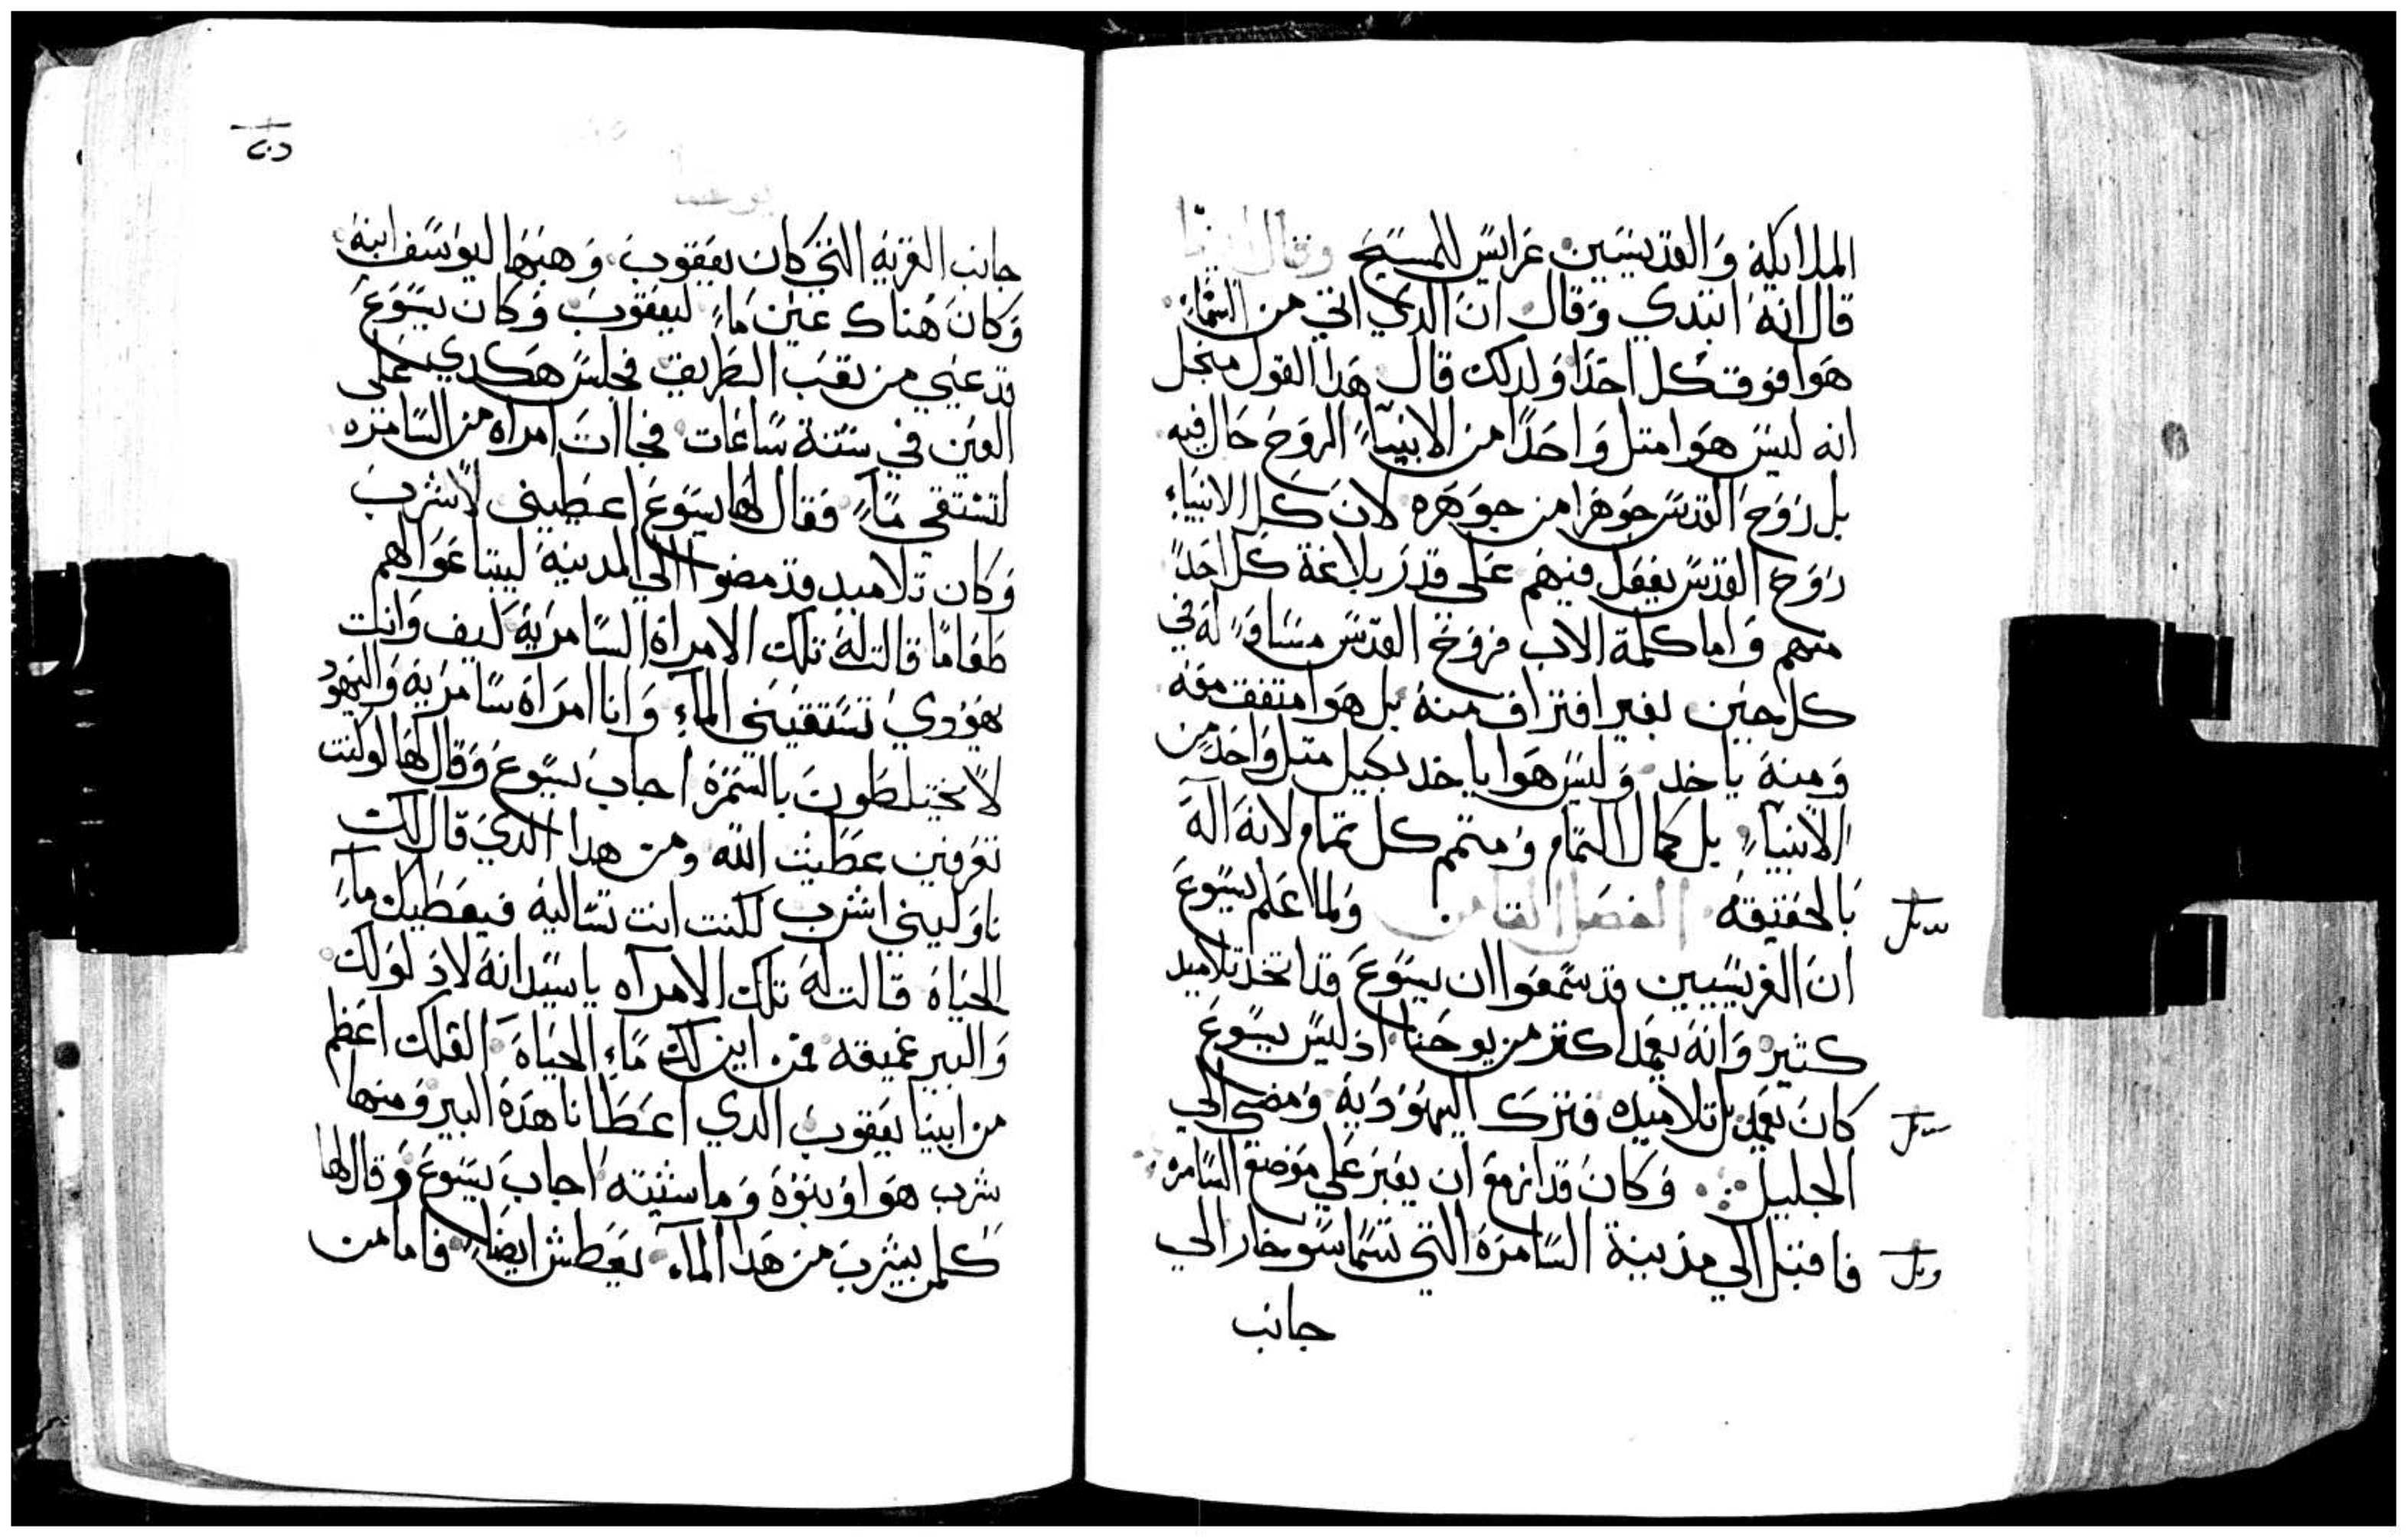 الملايكة والقديسين عرايس للمسيح وقال ايضا
قال انه ابتدي وقال ان الدي اتي من السماء
هوا فوق كل احدا ولدلك قال هدا القول منجل
انه ليس هوا متل واحدا من الانبيآء الروح حال فيه
بل روح القدس جوهرا من جوهره لان كل الانبياء
روح القدس يفعل فيهم علي قدر بلاغة كل احدا
منهم واما كلمة الاب فروح القدس مساوي له في
كل حين بغير افتراف منه بل هوا متفق معه
ومنه ياخد وليس هوا ياخد بكيل متل واحد من
الانبيآء بل كمال التمام ومتمم كل تمام لانه اله
بالحقيقه الفصل التامن ولما علم يسوع
ان الفريسيين قد سمعوا ان يسوع قد اتخد تلاميد
كتير وانه يعمد اكتر من يوحنا اذ ليس يسوع
كان يعمد بل تلاميده فترك اليهوديه ومضي الي
الجليل وكان قد ازمع ان يعبر علي موضع السامره
فاقبل الي مدينة السامره التي تسما سوخار الي
جانب
يوحنا
جانب القريه التي كان يعقوب وهبها ليوسف ابنه
وكان هناك عين ماء ليعقوب وكان يسوع
قد عيي من تعب الطريق فجلس هكدي علي
العين في ستة ساعات فجاات امراه من السامره
لتستقي مآء فقال لها يسوع اعطيني لاشرب
وكان تلاميد قد مضوا الي المدينة ليبتاعوا لهم
طعاما قالت له تلك الامراة السامرية كيف وانت
يهودي تستقيني المآء وانا امراة سامرية واليهود
لا يختلطون بالسمرة اجاب يسوع وقال لها لو كنت
تعرفين عطيت الله ومن هدا الدي قال لك
ناوليني اشرب لكنت انت تساليه فيعطيك مآء
الحياة قالت له تلك الامرآه يا سيد انه لا دلو لك
والبير عميقه فمن اين لك مآء الحياة العلك اعظم
من ابينا يعقوب الدي اعطانا هده البير ومنها
شرب هوا وبنوه وماشيته اجاب يسوع وقال لها
كلمن يشرب من هدا المآء يعطش ايضا فاما من